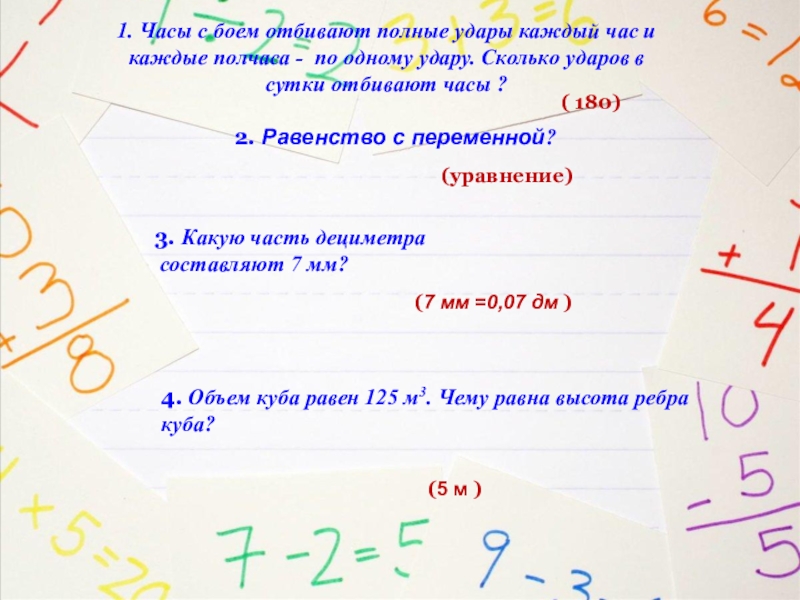 1. Часы с боем отбивают полные удары каждый час и
каждые полчаса - по одному удару. Сколько ударов в
сутки отбивают часы ?
( 180)
2. Равенство с переменной?
(уравнение)
3. Какую часть дециметра
составляют 7 мм?
(7 мм =0,07 дм )
4. Объем куба равен 125 м³. Чему равна высота ребра
куба?
(5 м )
1 ÷ 2 = 2
3 + 3 = 6
6 =
+ 1
4
8
10
- 5
5
+ 5 = 20
7 - 2 = 5
9 - 3 =